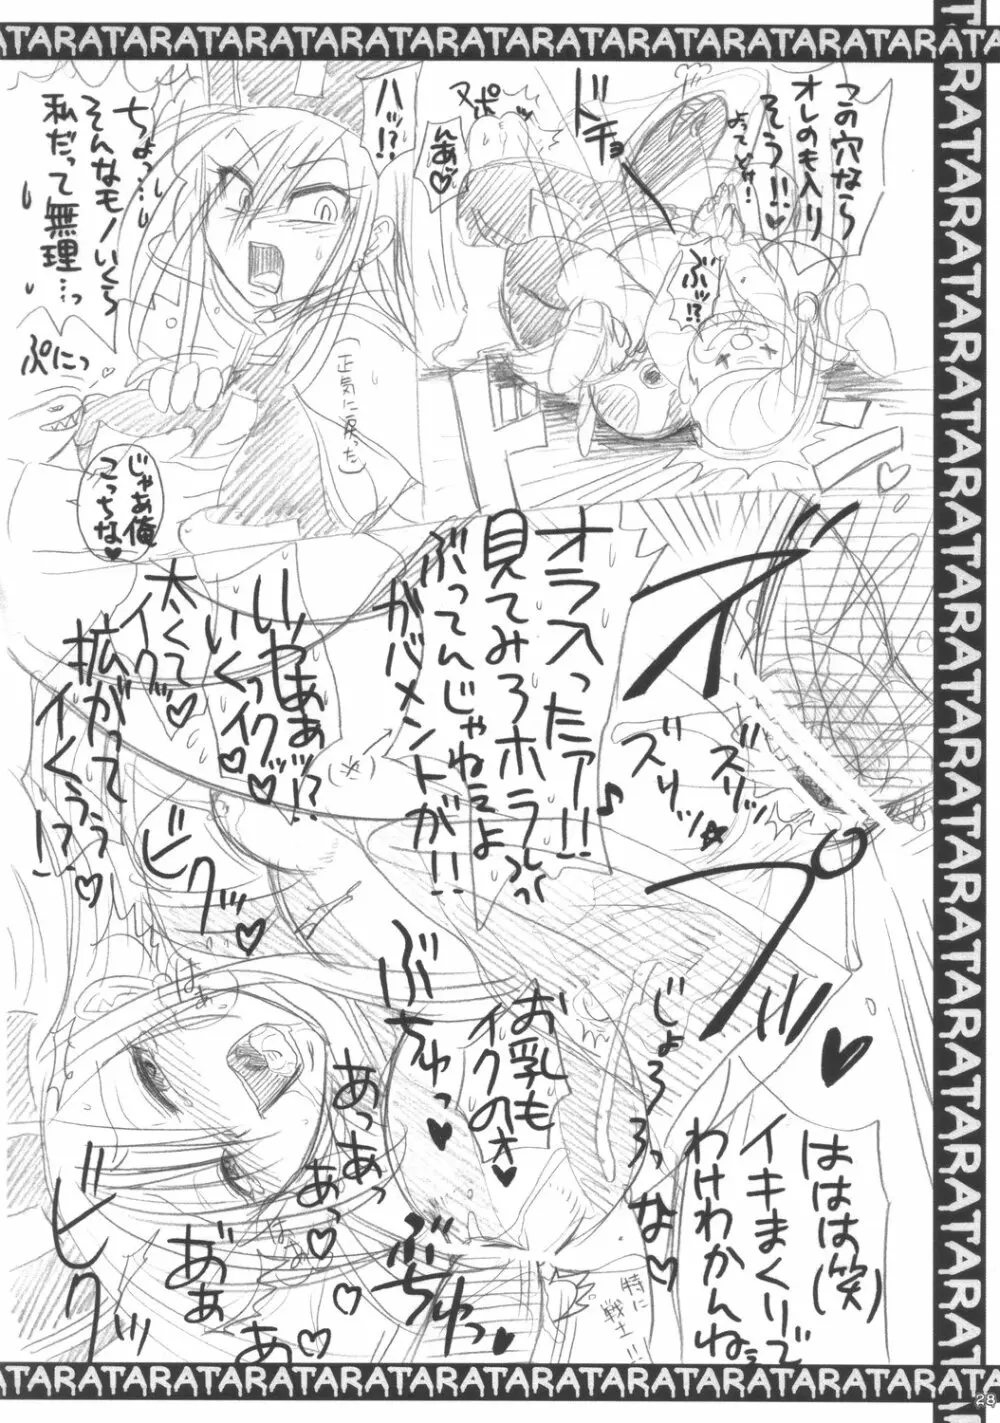 TARATARATARATARATARATARATARATARATARATARATARATA
この穴なら
オレのも入り
そう!!♡
よってどけ!
ぶッ!?
ドチョ
ヌポ
んあ♡
ハッ!?
ちょっ…
そんなモノいくら
私だって無理…っ
ぷにっ
(正気に戻った)
じゃあ俺
こっちな♡
オラ入ったァ!!
見てみろホラっ
ぶってんじゃねぇよ
ガバメントが!!
ズリッ
ズリッ
いひあぁッ!?
いくっイグッ♡
太くて
イグ♡
拡がって
イくぅぅ!?♡
ビクッ♡
はぁ
ぶちゅっ♡
お乳も
イクのぉ♡
じょろろっ
な♡
ははは(笑)
イキまくりで
わけわかんねぇ
特に
戦士!!
あっあっ
あっ♡
あ♡
ぶちゅっ
ビクッ
あ゛ぁ
TARATARATARATARATARATARATARATARATARATARATARATA
28